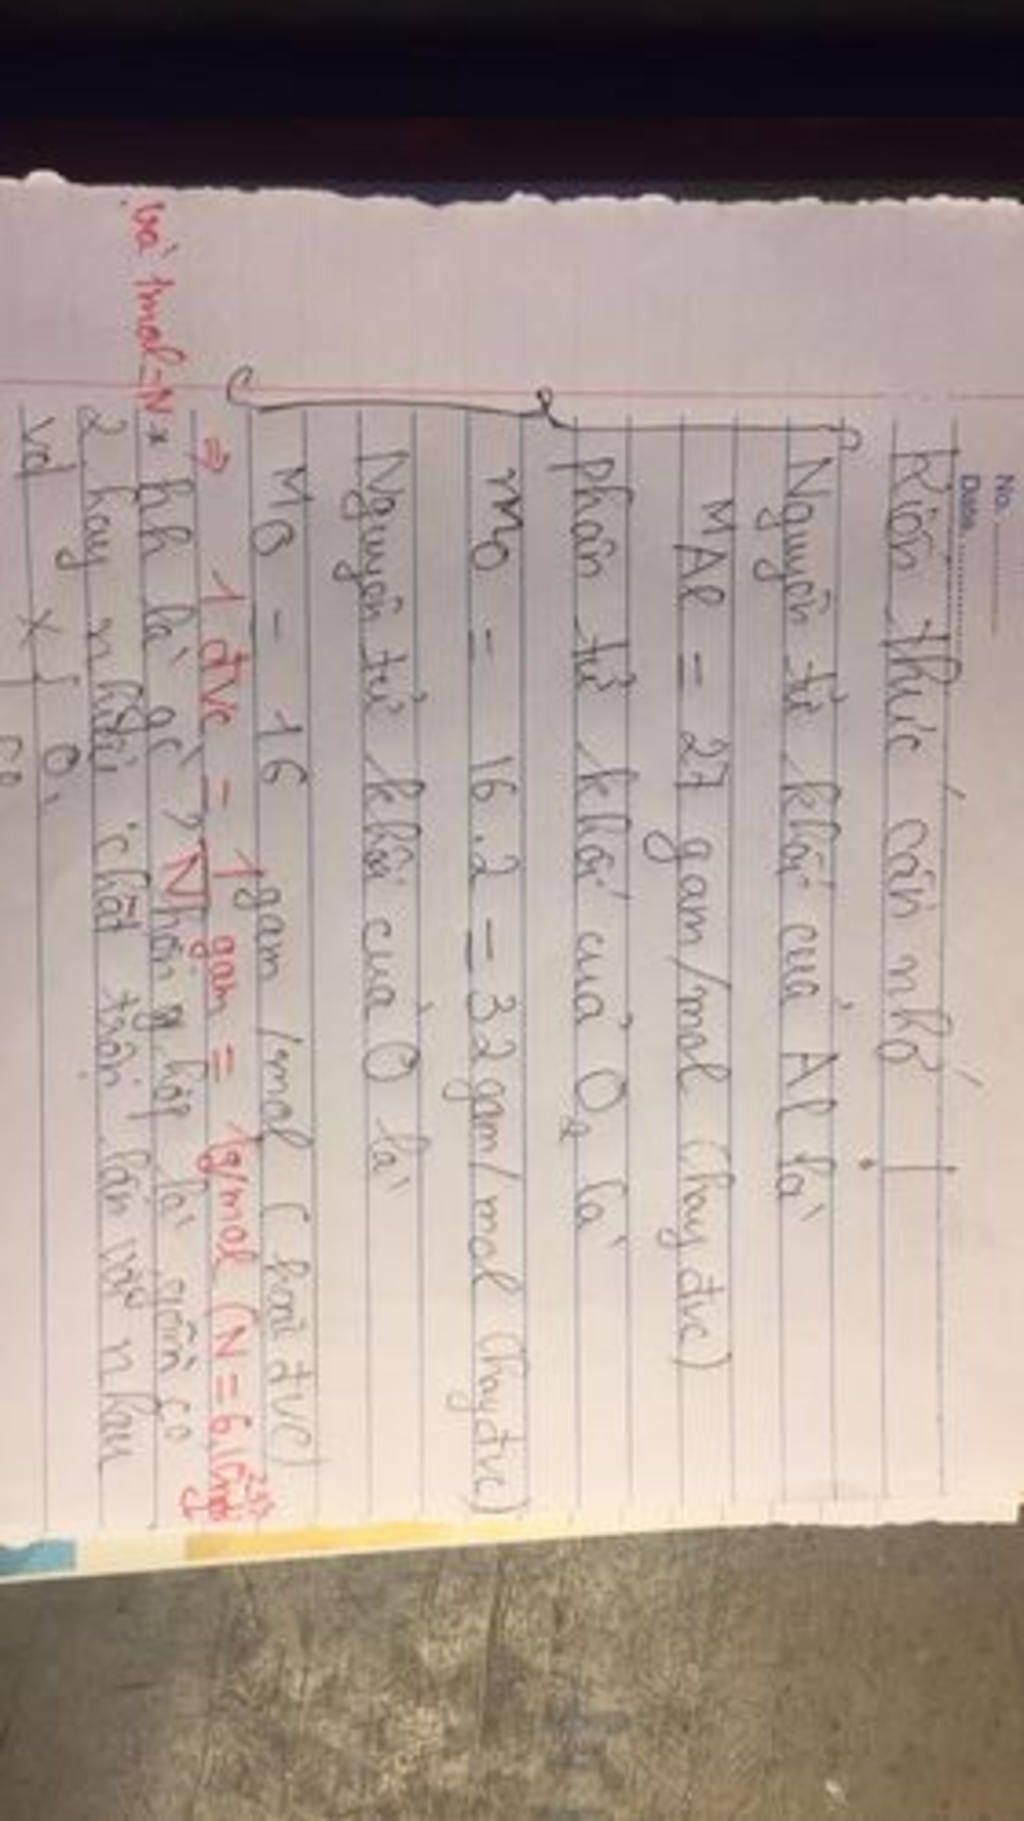 No.
Date
Kiến thức cần nhớ
Nguyên tử khối của Al là
M Al = 27 gam/mol (hay đvc)
phân tử khối của O2 là
mO = 16.2 = 32 gam/mol (hay đvc)
Nguyên tử khối của O là
MO = 16 gam/mol (hoặc đvc)
⇒ 1 đvc = 1/N gam = 1g/mol (N = 6,
và 1mol = N
* hh là gì? Nhóm hợp là gồm có
2 hay nhiều chất trộn lẫn với nhau
Vd X { O2